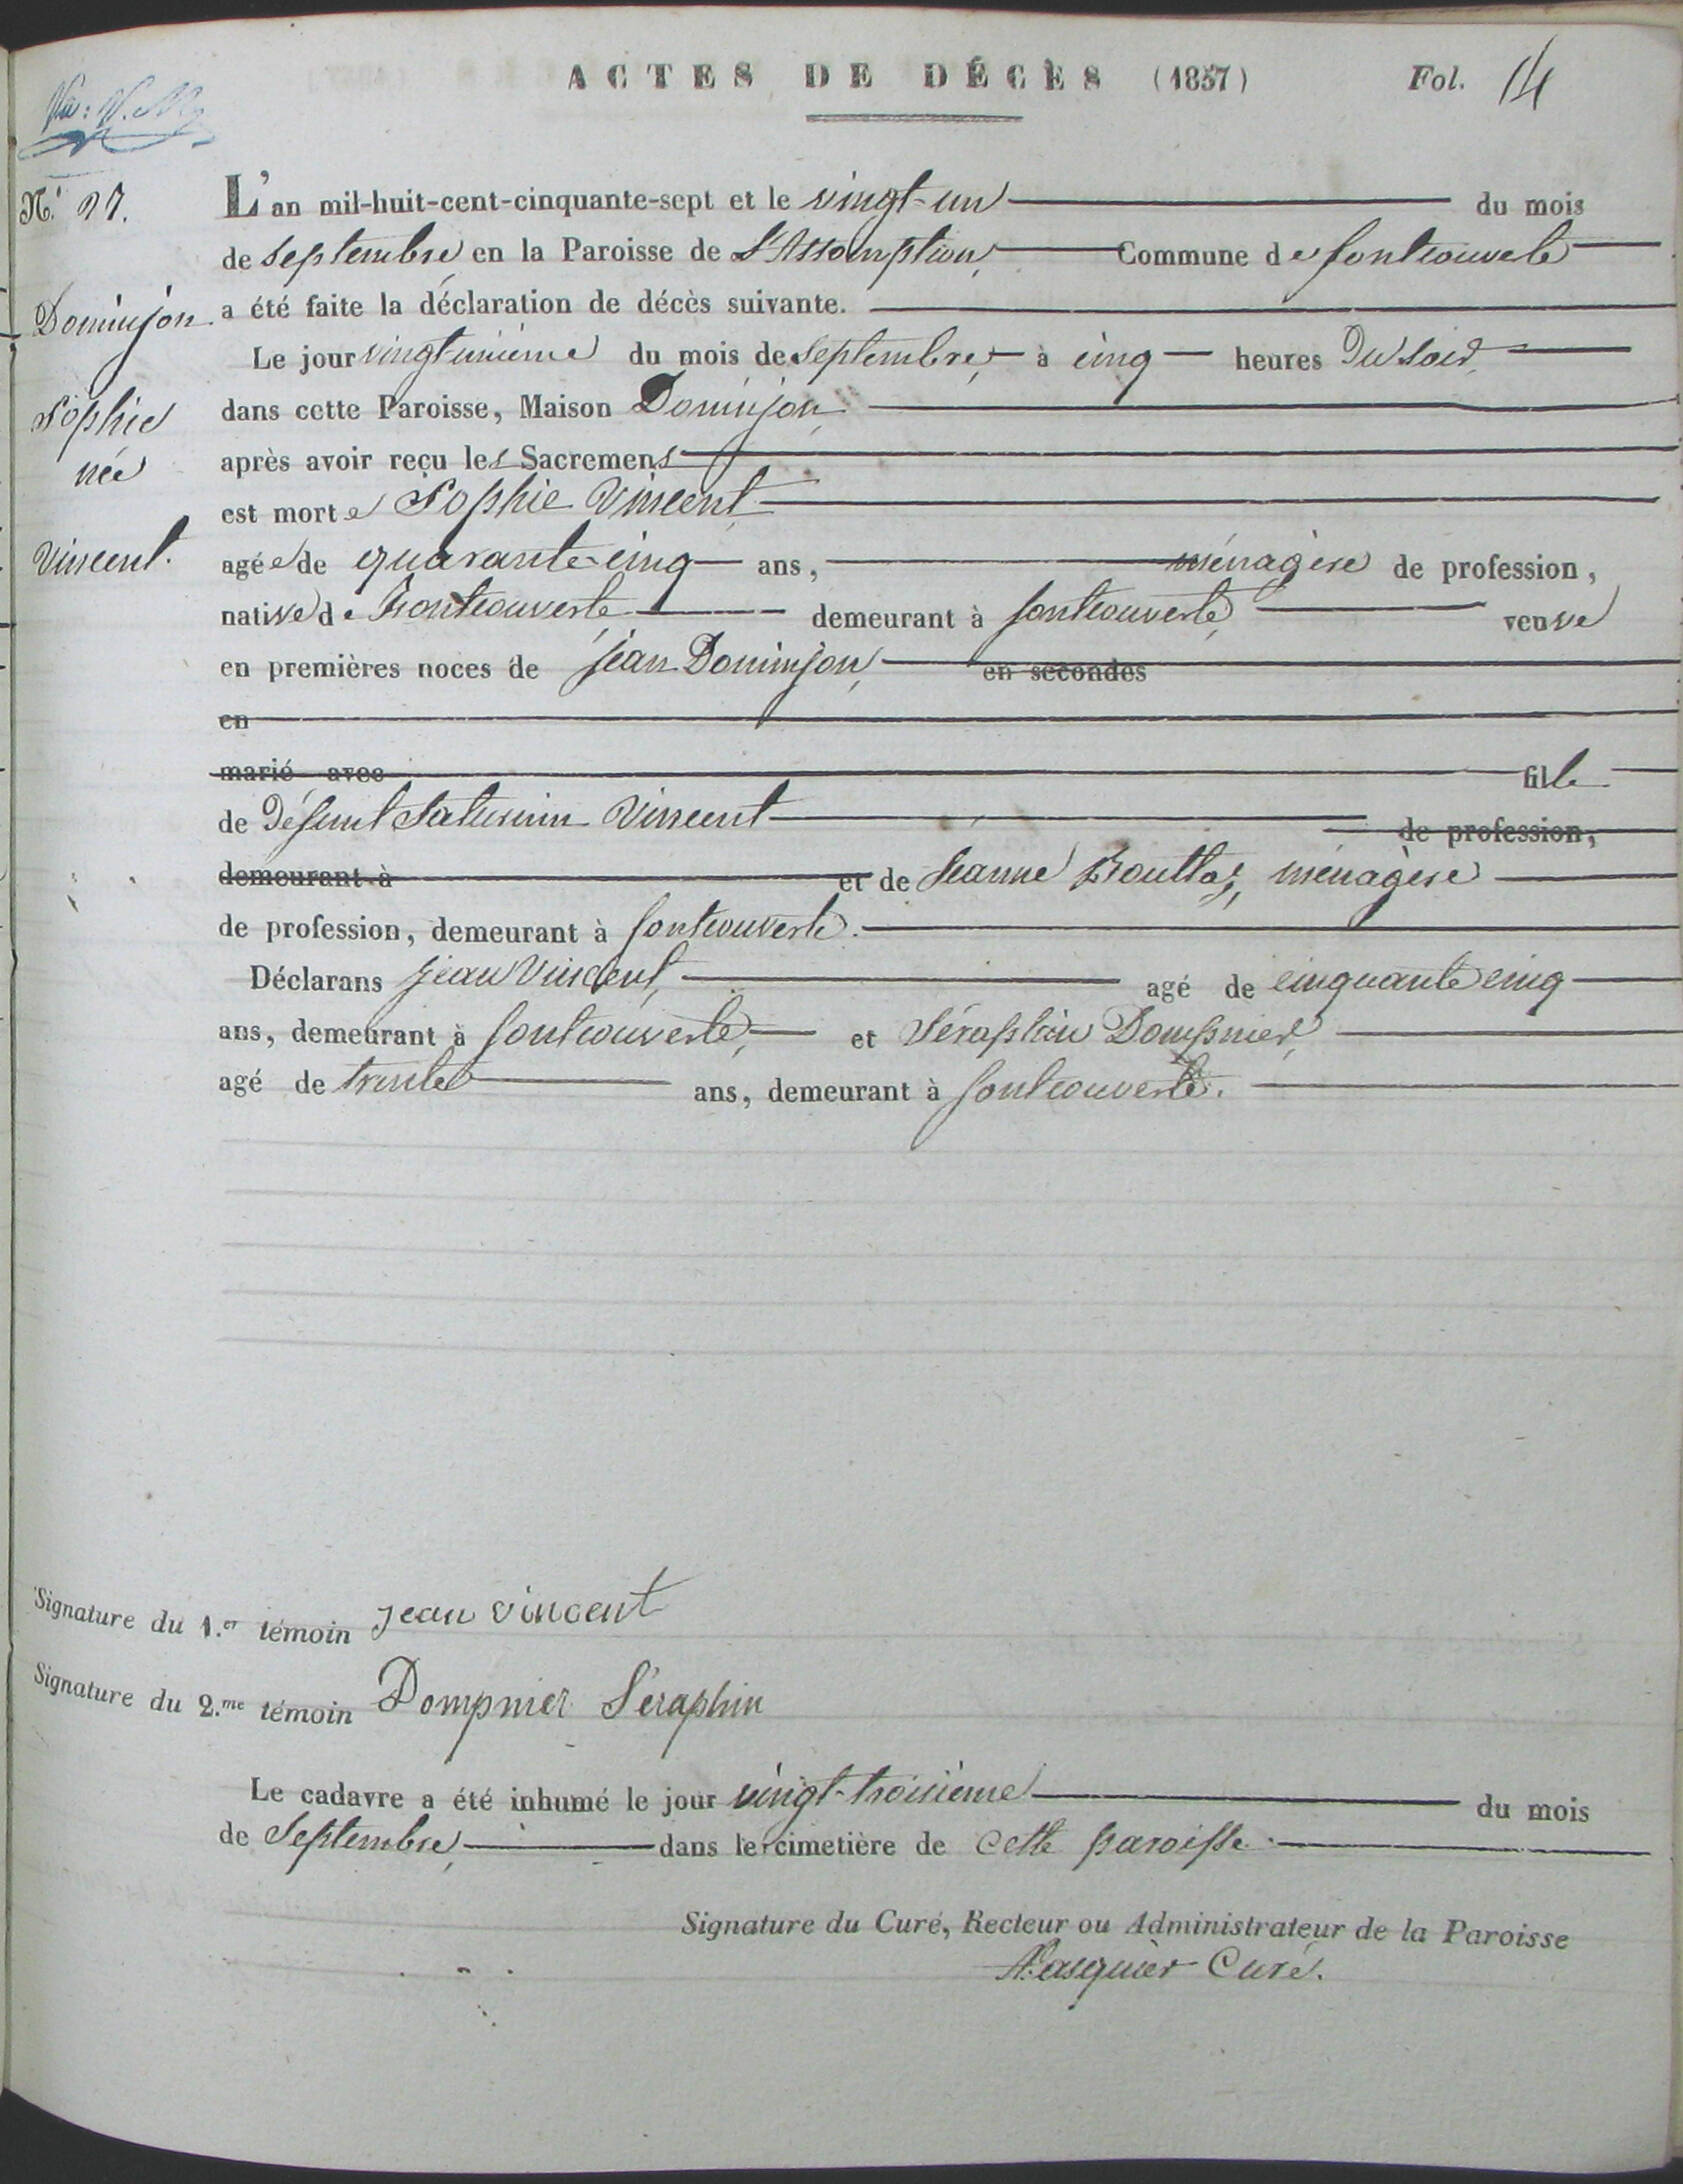 ACTES DE DÉCÈS (1857) Fol. 14
N.° 27.
L'an mil-huit-cent-cinquante-sept et le vingt-un du mois
de septembre en la Paroisse de L'Assomption, Commune de fontcouverte
Dominjon
a été faite la déclaration de décès suivante.
Le jour vingt-unième du mois de septembre, à cinq heures du soir,
Sophie
dans cette Paroisse, Maison Dominjon,
née
après avoir reçu les Sacremens
est morte Sophie Vincent,
Vincent.
agée de quarante-cinq ans, ménagère de profession,
native de Fontcouverte demeurant à fontcouverte, veuve
en premières noces de jean Dominjon, en secondes
en
marié avec fille
de défunt Saturnin Vincent de profession,
demeurant à et de Jeanne ménagère
de profession, demeurant à fontcouverte.
Déclarans jean Vincent, agé de cinquante cinq
ans, demeurant à fontcouverte, et Séraphin Dompnier,
agé de trente ans, demeurant à fontcouverte.
Signature du 1.er témoin jean vincent
Signature du 2.me témoin Dompnier Séraphin
Le cadavre a été inhumé le jour vingt-troisième du mois
de Septembre, dans le cimetière de cette paroisse.
Signature du Curé, Recteur ou Administrateur de la Paroisse
Pasquier Curé.